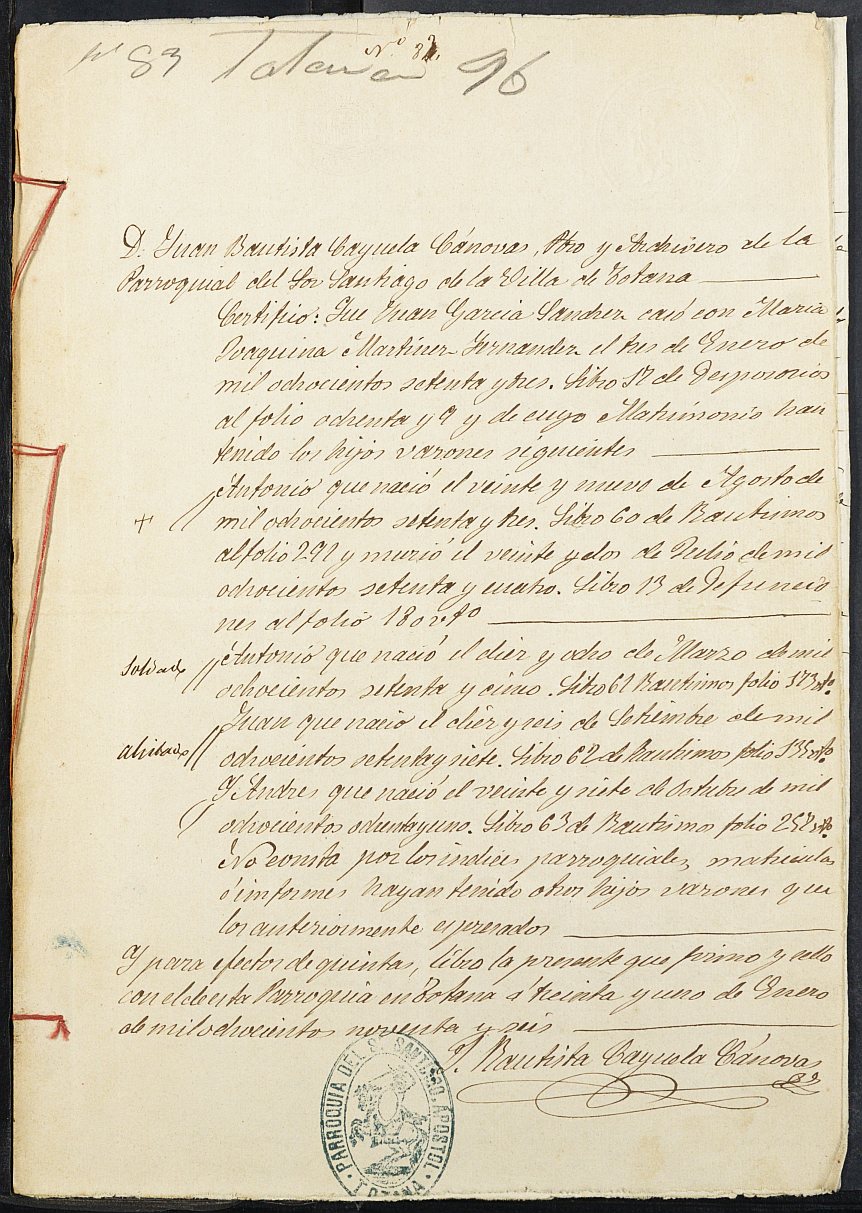 Nº 83
Nº 83 Totana 96
D. Juan Bautista Cayuela Cánovas, Pbro y Archivero de la
Parroquial del Sor Santiago de la Villa de Totana
Certifico: Que Juan Garcia Sanchez casó con Maria
Joaquina Martinez Fernandez el tres de Enero de
mil ochocientos setenta y tres. Libro 17 de Desposorios
al folio ochenta y 9 y de cuyo Matrimonio han
tenido los hijos varones siguientes
+
Antonio que nació el veinte y nueve de Agosto de
mil ochocientos setenta y tres. Libro 60 de Bautismos
al folio 292 y murió el veinte y dos de Julio de mil
ochocientos setenta y cuatro. Libro 13 de Defuncio
nes al folio 180 vto
Soldado
Antonio que nació el diez y ocho de Marzo de mil
ochocientos setenta y cinco. Libro 61 Bautismos folio 173 vto.
alistado
Juan que nació el diez y seis de Setiembre de mil
ochocientos setenta y siete. Libro 62 de Bautismos folio 135 vto.
Y Andres que nació el veinte y siete de Octubre de mil
ochocientos ochenta y uno. Libro 63 de Bautismos folio 257 vto
No consta por los indices parroquiales, matriculas
ó informes hayan tenido otros hijos varones que
los anteriormente espresados
Y para efectos de quintas, libro la presente que firmo y sello
con el de esta Parroquia en Totana á treinta y uno de Enero
de mil ochocientos noventa y seis
J. Bautista Cayuela Cánovas
PARROQUIA DEL Sr. SANTIAGO APOSTOL
TOTANA